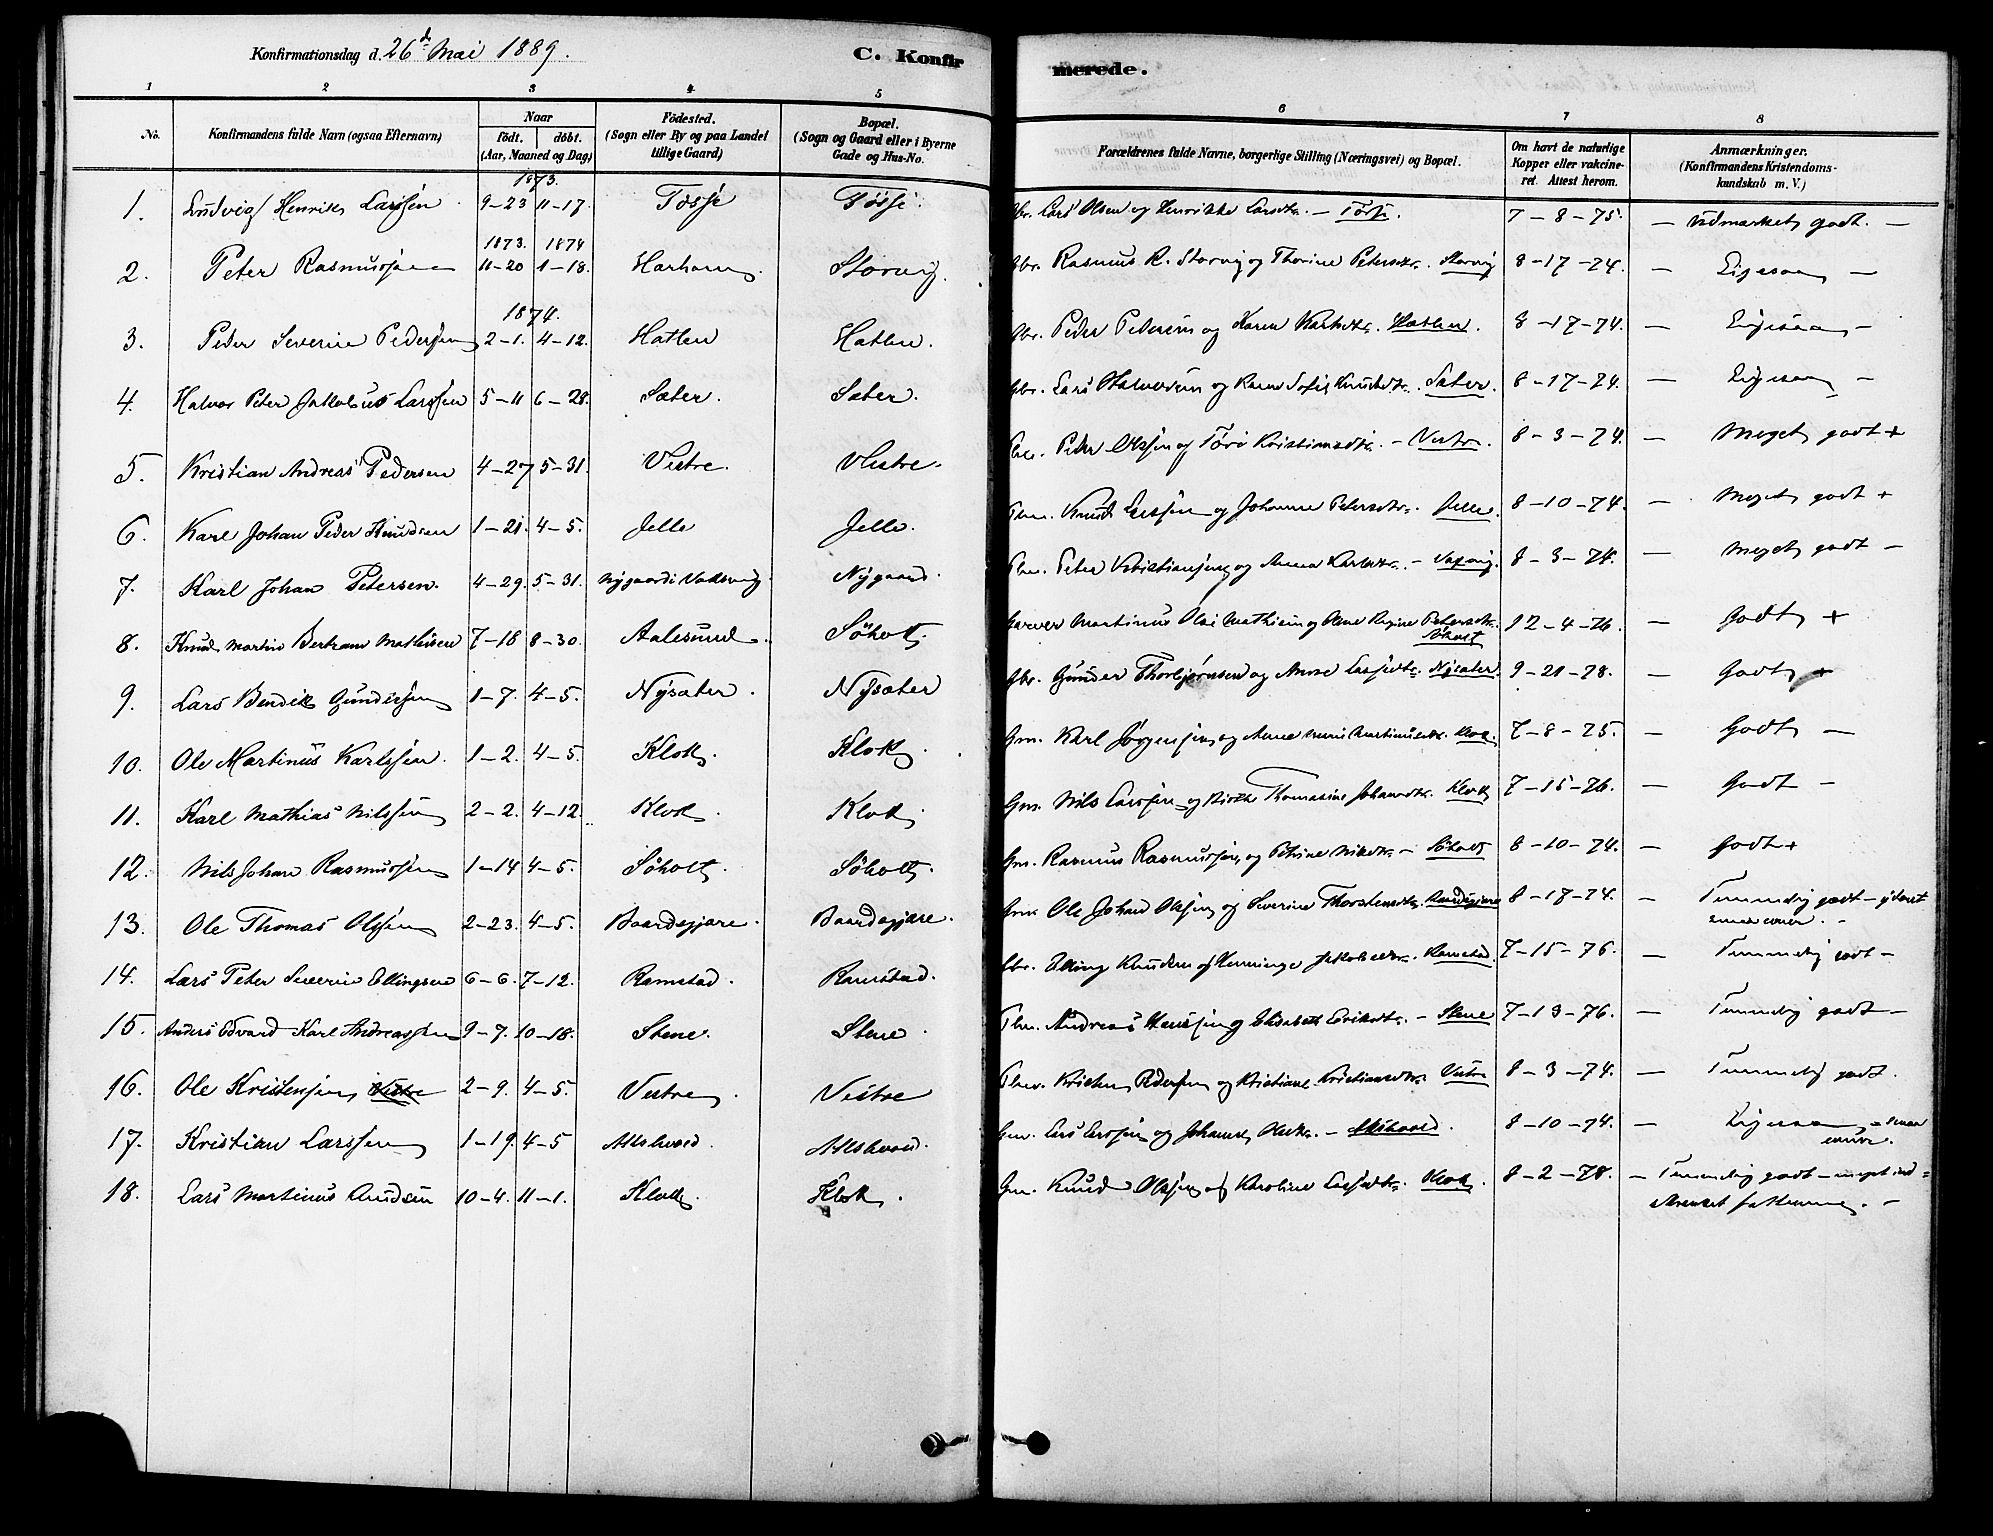 Konfirmationsdag d. 26de Mai 1889. C. Konfirmerede.
1 2 3 4 5 6 7 8
No. Konfirmandens fulde Navn (ogsaa Efternavn) Naar födt. döbt. (Aar, Maaned og Dag) Födested. (Sogn eller By og paa Landet tillige Gaard) Bopæl. (Sogn og Gaard eller i Byerne Gade og Hus-No. Forældrenes fulde Navne, borgerlige Stilling (Næringsvei) og Bopæl. Om havt de naturlige Kopper eller vakcineret. Attest herom. Anmærkninger. (Konfirmandens Kristendomskundskab m. V.)
1873.
1. Ludvig Henrik Larssen 9-23 11-17. Tøsse Tøsse. Gbr. Lars Olsen og Henrikke Larsdtr. - Tøsse. 7-8-75. - Udmærket godt. -
1873. 1874
2. Peter Rasmussen 11-20 1-18. Harham. Storvig. Gbr. Rasmus R. Storvig og Thorine Petersdtr. Storvig 8-17-74. - Ligesaa -
1874.
3. Peder Severin Pedersen 2-1. 4-12. Hatlen Hatlen. Gbr. Peder Pedersen og Karen Karlsdtr. Hatlen. 8-17-74. - Ligesaa -
4. Halvor Peter Jakobus Larssen 5-11 6-28. Sæter. Sæter. Gbr. Lars Halvorsen og Karen Sofie Knudsdtr. Sæter. 8-17-74. - Ligesaa -
5. Kristian Andreas Pedersen 4-27 5-31. Vestre. Vestre. Peder Olssen og Kristiansdtr. - Vestre. 8-3-74. - Meget godt +
6. Karl Johan Peder Knudsen 1-21. 4-5. Jelle Jelle. Knud Larssen og Johanne Petersdtr. Jelle. 8-10-74. - Meget godt +
7. Karl Johan Petersen. 4-29. 5-31. Nygaard i Nygaard. Peter Kristiansen og Anna Larsdtr. - 8-3-74. - Meget godt -
8. Knud Martin Bertram Mathisen 7-18 8-30. Aalesund. Søholt. Garver Martinus Olai Mathisen og Regine Petersdtr. Søholt 12-4-76. - Godt +
9. Lars Bendik Gundersen 1-7. 4-5. Nysæter. Nysæter Gbr. Gunder Thorbjørnsen og Anne Larsdtr. Nysæter. 9-21-78. - Godt +
10. Ole Martinus Karlssen. 1-2. 4-5. Klok. Klok. Gm. Karl Jørgensen og Anne Marie Martinusdtr. Klok. 7-8-75. - Godt -
11. Karl Mathias Nilssen 2-2. 4-12. Klok. Klok. Gm. Nils Larssen og Thomasine Johansdtr. Klok 7-15-76. - Godt -
12. Nils Johan Rasmussen 1-14 4-5. Søholt. Søholt. Gm. Rasmus Rasmussen og Petrine Nilsdtr. - Søholt 8-10-74. - Godt +
13. Ole Thomas Olssen 2-23. 4-5. Baardsgjære. Baardsgjære. Gm. Ole Johan Olssen og Severine Thorstensdtr. Baardsgjære 8-17-74. - Temmelig godt -
14. Lars Peter Severin Ellingsen 6-6. 7-12. Ramstad. Ramstad. Gbr. Elling Knudsen og Henninge Jakobsdtr. Ramstad. 7-15-76. - Temmelig godt -
15. Anders Edvard Karl Andreassen 9-7. 10-18. Stene. Stene Andreas Hanssen og Elisabeth Eriksdtr. - Stene 7-13-76. - Temmelig godt -
16. Ole Kristensen Vestre 2-9. 4-5. Vestre. Vestre Kristen Pedersen og Kristiane Kristiansdtr. Vestre 8-3-74. - Temmelig godt.
17. Kristian Larssen 1-19. 4-5 Gm. Lars Larssen og Johanne Olsdtr. - 8-10-74. - Ligesaa
18. Lars Martinus Knudsen 10-4. 11-1. Klok. Klok. Gm. Knud Olssen og Karoline Larsdtr. Klok. 8-2-78. - Temmelig godt - meget ind-
skrænket fatteevne. -